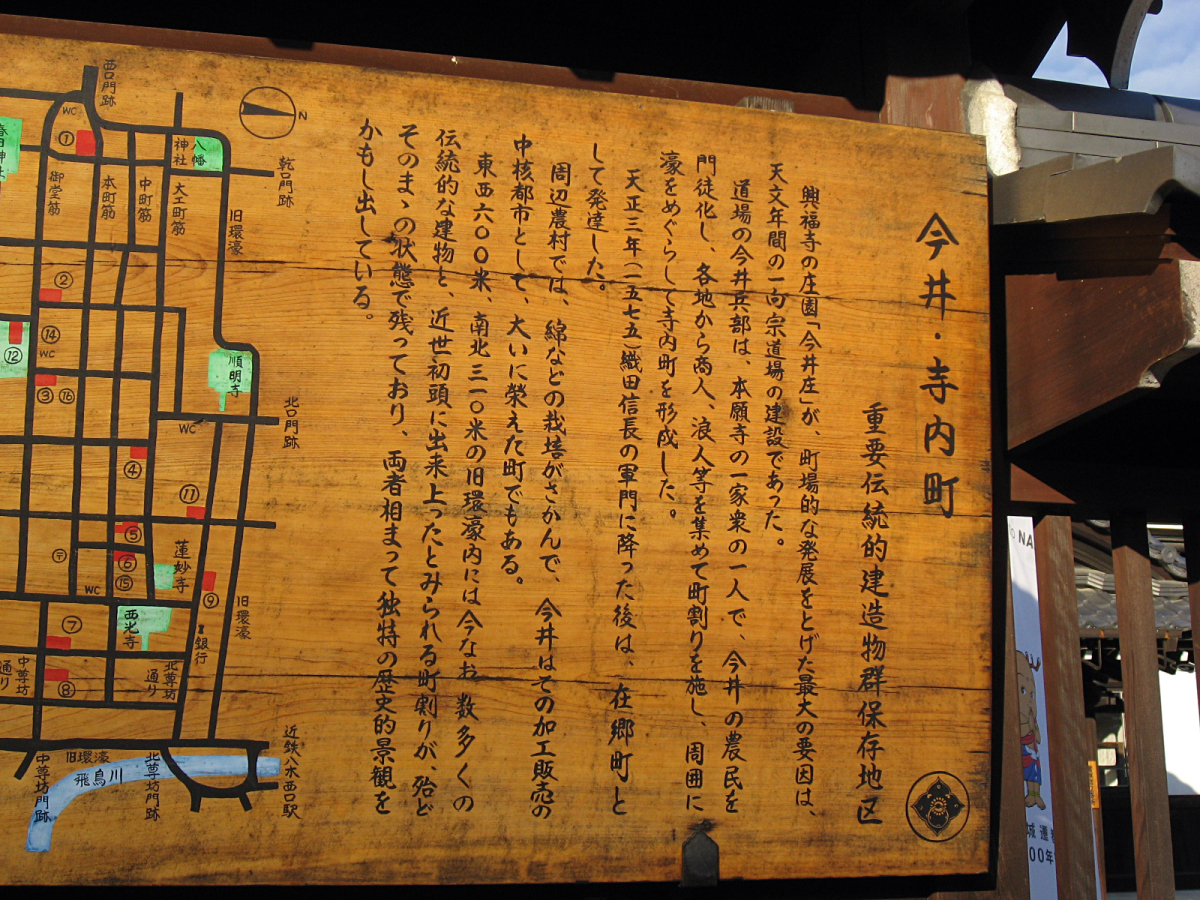 今井・寺内町
重要伝統的建造物群保存地区
興福寺の庄園「今井庄」が、町場的な発展をとげた最大の要因は、
天文年間の一向宗道場の建設であった。
道場の今井兵部は、本願寺の一家衆の一人で、今井の農民を
門徒化し、各地から商人、浪人等を集めて町割りを施し、周囲に
濠をめぐらして寺内町を形成した。
天正三年(一五七五)織田信長の軍門に降った後は、在郷町と
して発達した。
周辺農村では、綿などの栽培がさかんで、今井はその加工販売の
中核都市として、大いに栄えた町でもある。
東西六〇〇米、南北三一〇米の旧環濠内には今なお、数多くの
伝統的な建物と、近世初頭に出来上ったとみられる町割りが、殆ど
そのまゝの状態で残っており、両者相まって独特の歴史的景観を
かもし出している。
N
西口門跡
WC
①
春日神社
八幡神社
乾口門跡
御堂筋
本町筋
中町筋
大工町筋
旧環濠
②
⑭
WC
⑫
③
⑯
順明寺
北口門跡
WC
④
⑪
⑤
〒
⑥
⑮
WC
蓮妙寺
⑨
西光寺
⑦
銀行
旧環濠
⑧
中尊坊通り
北尊坊通り
旧環濠
飛鳥川
中尊坊門跡
北尊坊門跡
近鉄八木西口駅
NA
城遷
00年